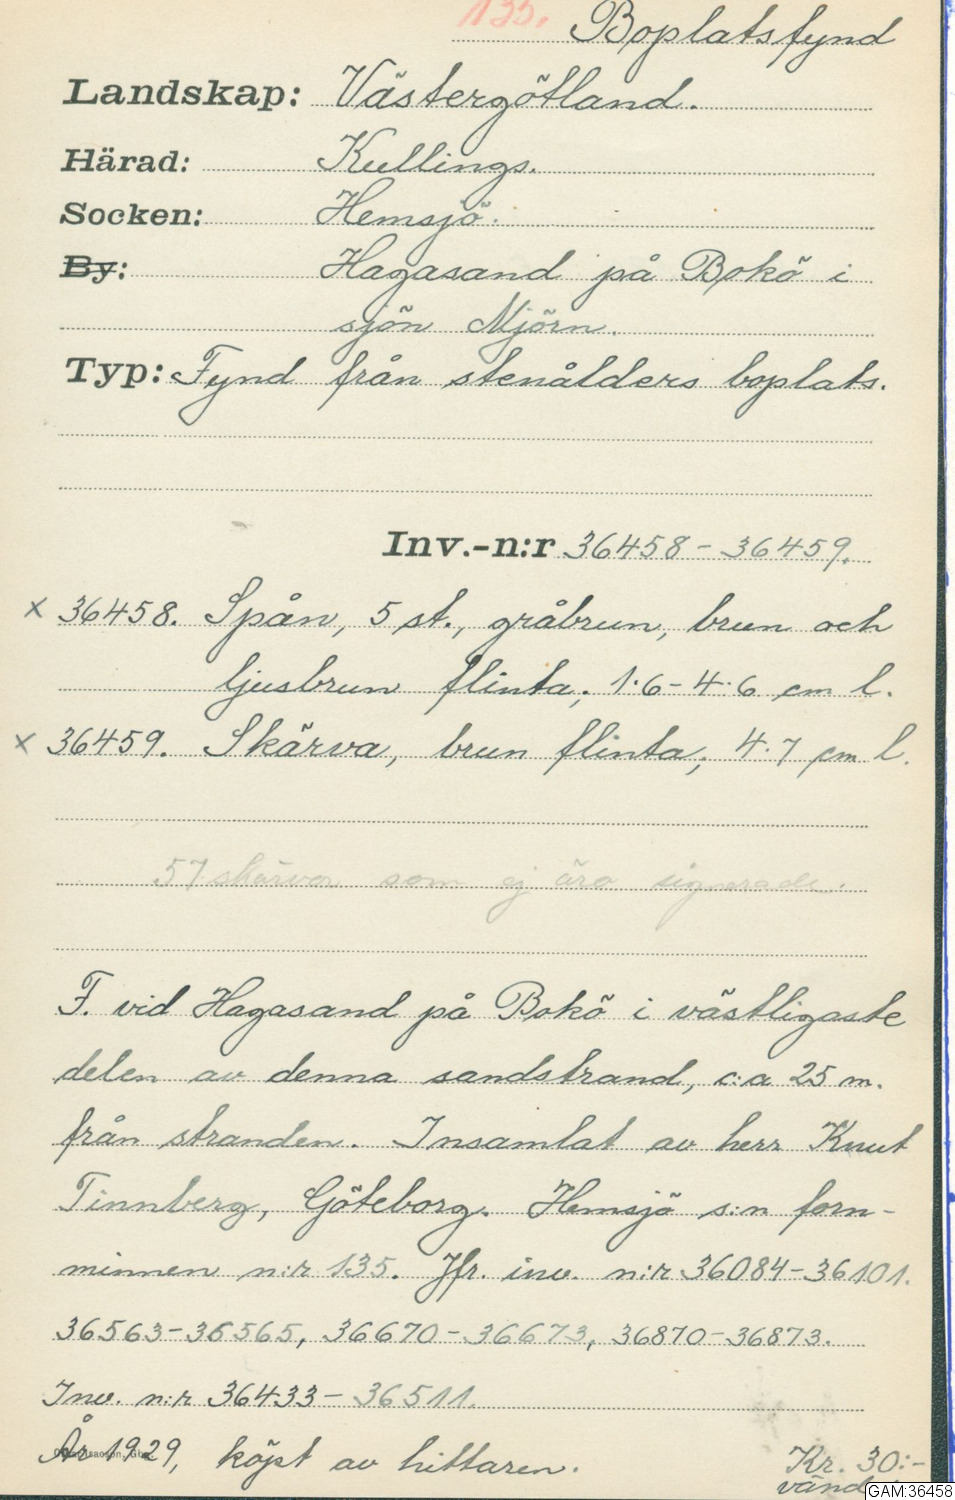 135. Boplatsfynd
Landskap: Västergötland.
Härad: Kullings.
Socken: Hemsjö.
By: Hagasand på Bokö i
sjön Mjörn.
Typ: Fynd från stenålders boplats.
Inv.-n:r 36458-36459.
x 36458. Spån, 5 st., gråbrun, brun och
ljusbrun flinta; 1.6-4.6 cm l.
x 36459. Skärva, brun flinta; 4.7 cm l.
57 skärvor som ej äro signerade.
F. vid Hagasand på Bokö i västligaste
delen av denna sandstrand, c:a 25 m.
från stranden. Insamlat av herr Knut
Tinnberg, Göteborg. Hemsjö s:n forn-
minnen n:r 135. Jfr. inv. n:r 36084-36101.
36563-36565, 36670-36673, 36870-36873.
Inv. n:r 36433-36511.
År 1929, köpt av hittaren. Kr. 30:-
vänd
GAM:36458